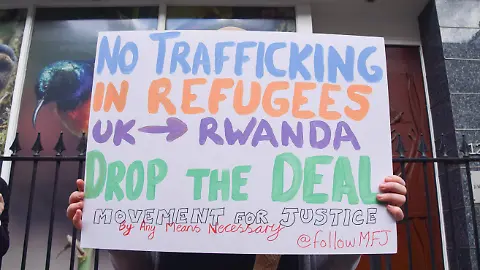 NO TRAFFICKING
IN REFUGEES
UK → RWANDA
DROP THE DEAL
MOVEMENT FOR JUSTICE
By Any Means Necessary
@followMFJ